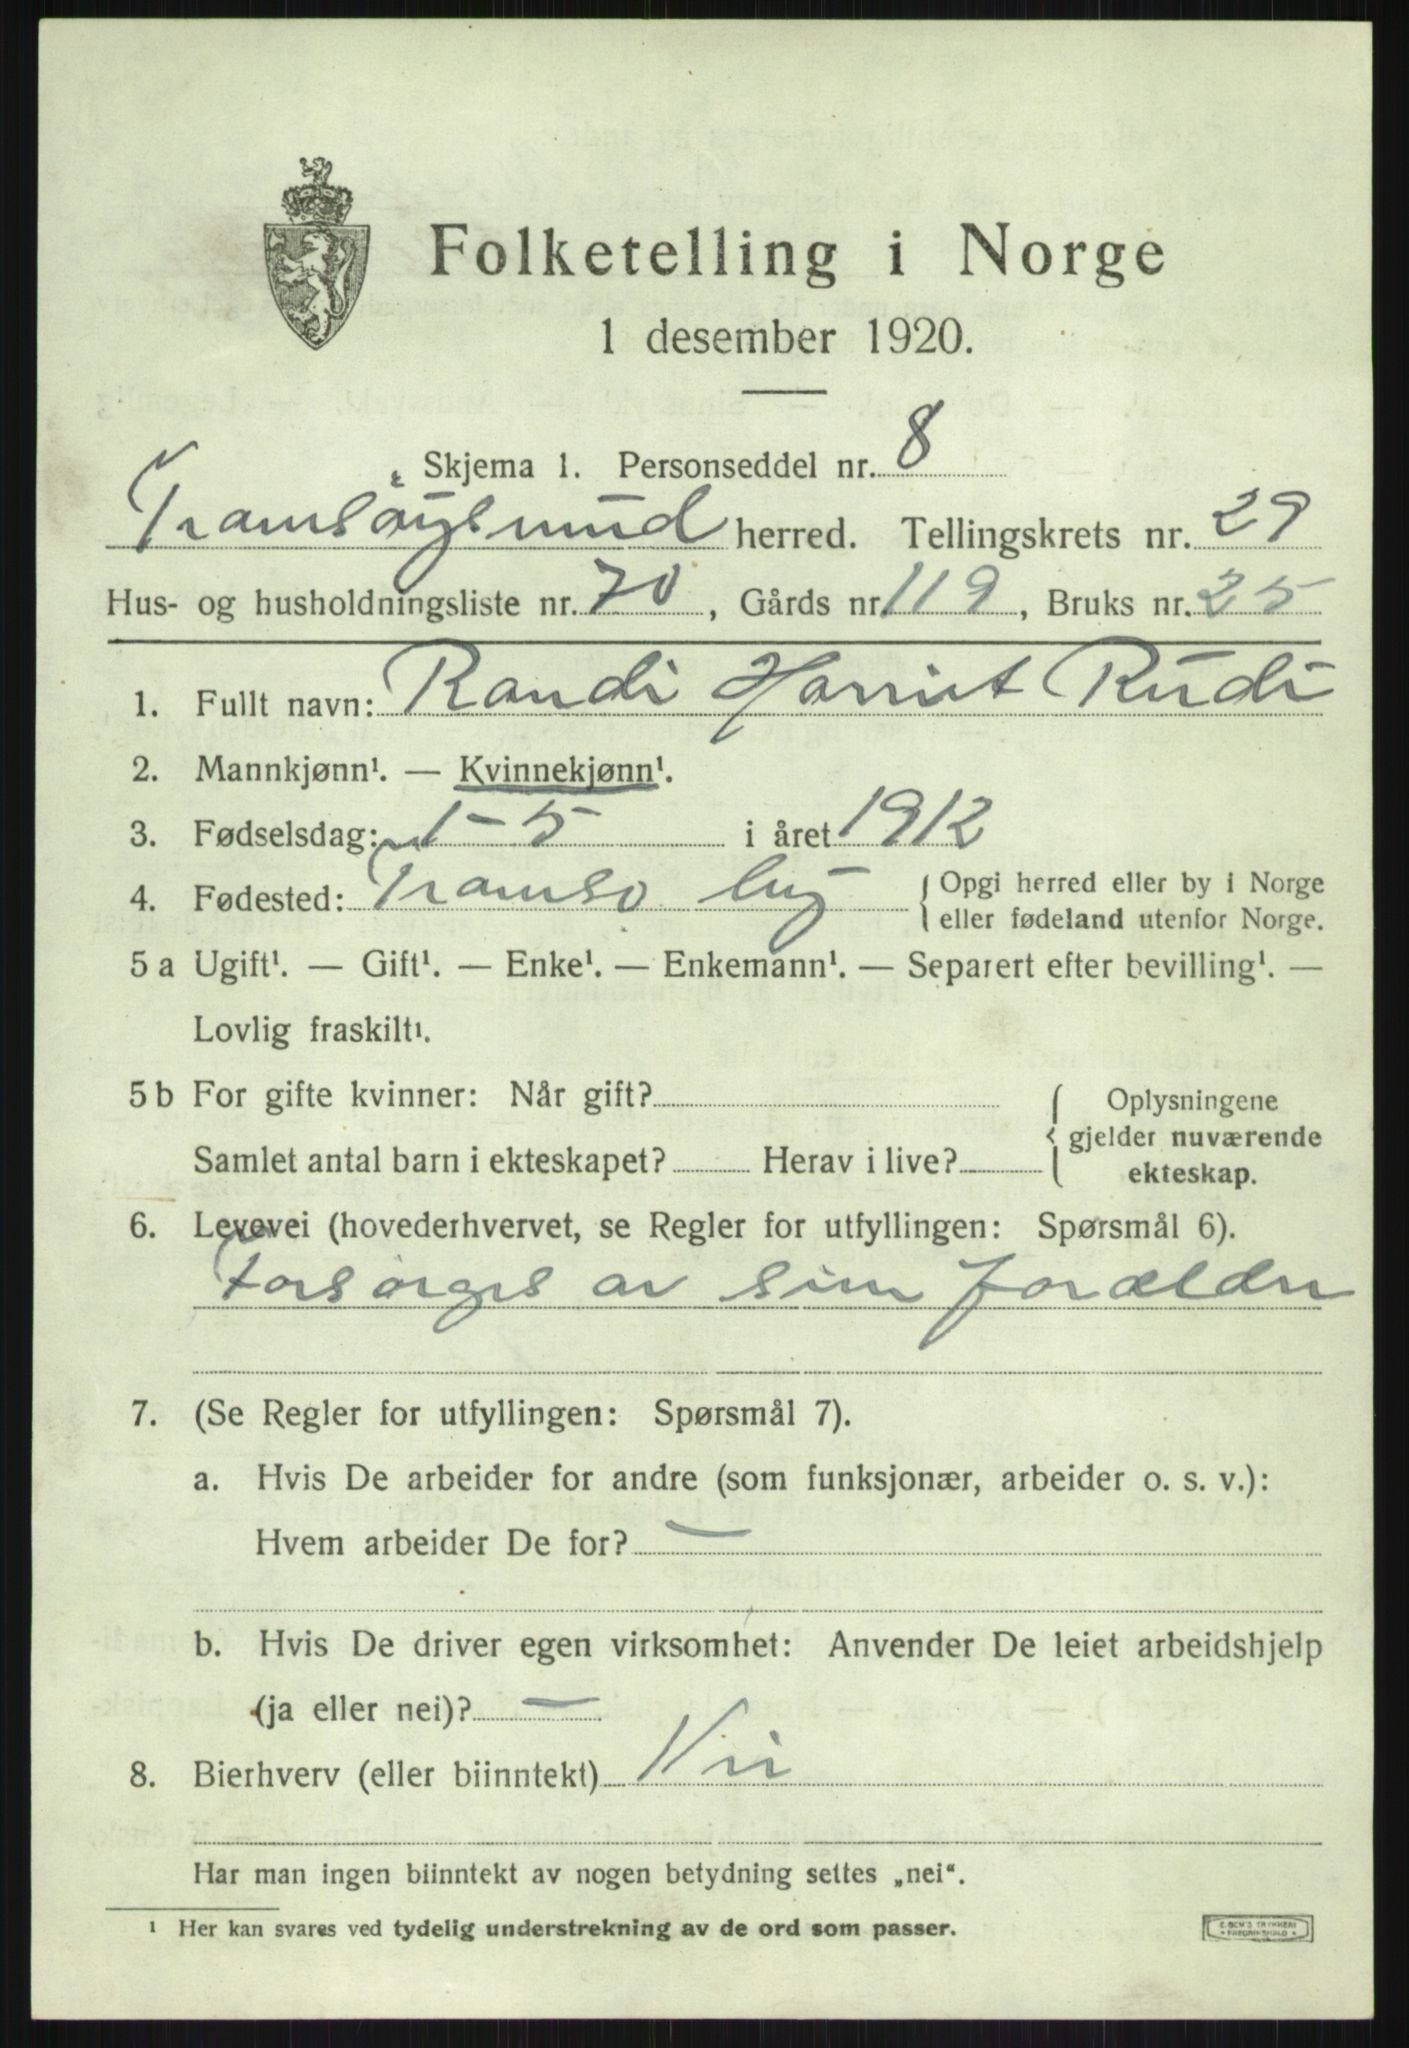 Folketelling i Norge
1 desember 1920.
Skjema 1. Personseddel nr. 8
Tromsøysund herred. Tellingskrets nr. 29
Hus- og husholdningsliste nr. 70, Gårds nr. 119, Bruks nr. 25
1. Fullt navn: Randi Harriet Rudi
2. Mannkjønn¹. — Kvinnekjønn¹.
3. Fødselsdag: 1-5 i året 1912
4. Fødested: Tromsø by {Opgi herred eller by i Norge
eller fødeland utenfor Norge.
5 a Ugift¹. — Gift¹. — Enke¹. — Enkemann¹. — Separert efter bevilling¹. —
Lovlig fraskilt¹.
5 b For gifte kvinner: Når gift? { Oplysningene
gjelder nuværende
Samlet antal barn i ekteskapet? Herav i live? ekteskap.
6. Levevei (hovederhvervet, se Regler for utfyllingen: Spørsmål 6).
Forsørges av sine forældre
7. (Se Regler for utfyllingen: Spørsmål 7).
a. Hvis De arbeider for andre (som funksjonær, arbeider o. s. v.):
Hvem arbeider De for? —
b. Hvis De driver egen virksomhet: Anvender De leiet arbeidshjelp
(ja eller nei)? —
8. Bierhverv (eller biinntekt) Nei
Har man ingen biinntekt av nogen betydning settes „nei“.
¹ Her kan svares ved tydelig understrekning av de ord som passer.
E. SEM'S TRYKKERI
* FREDRIKSHALD *